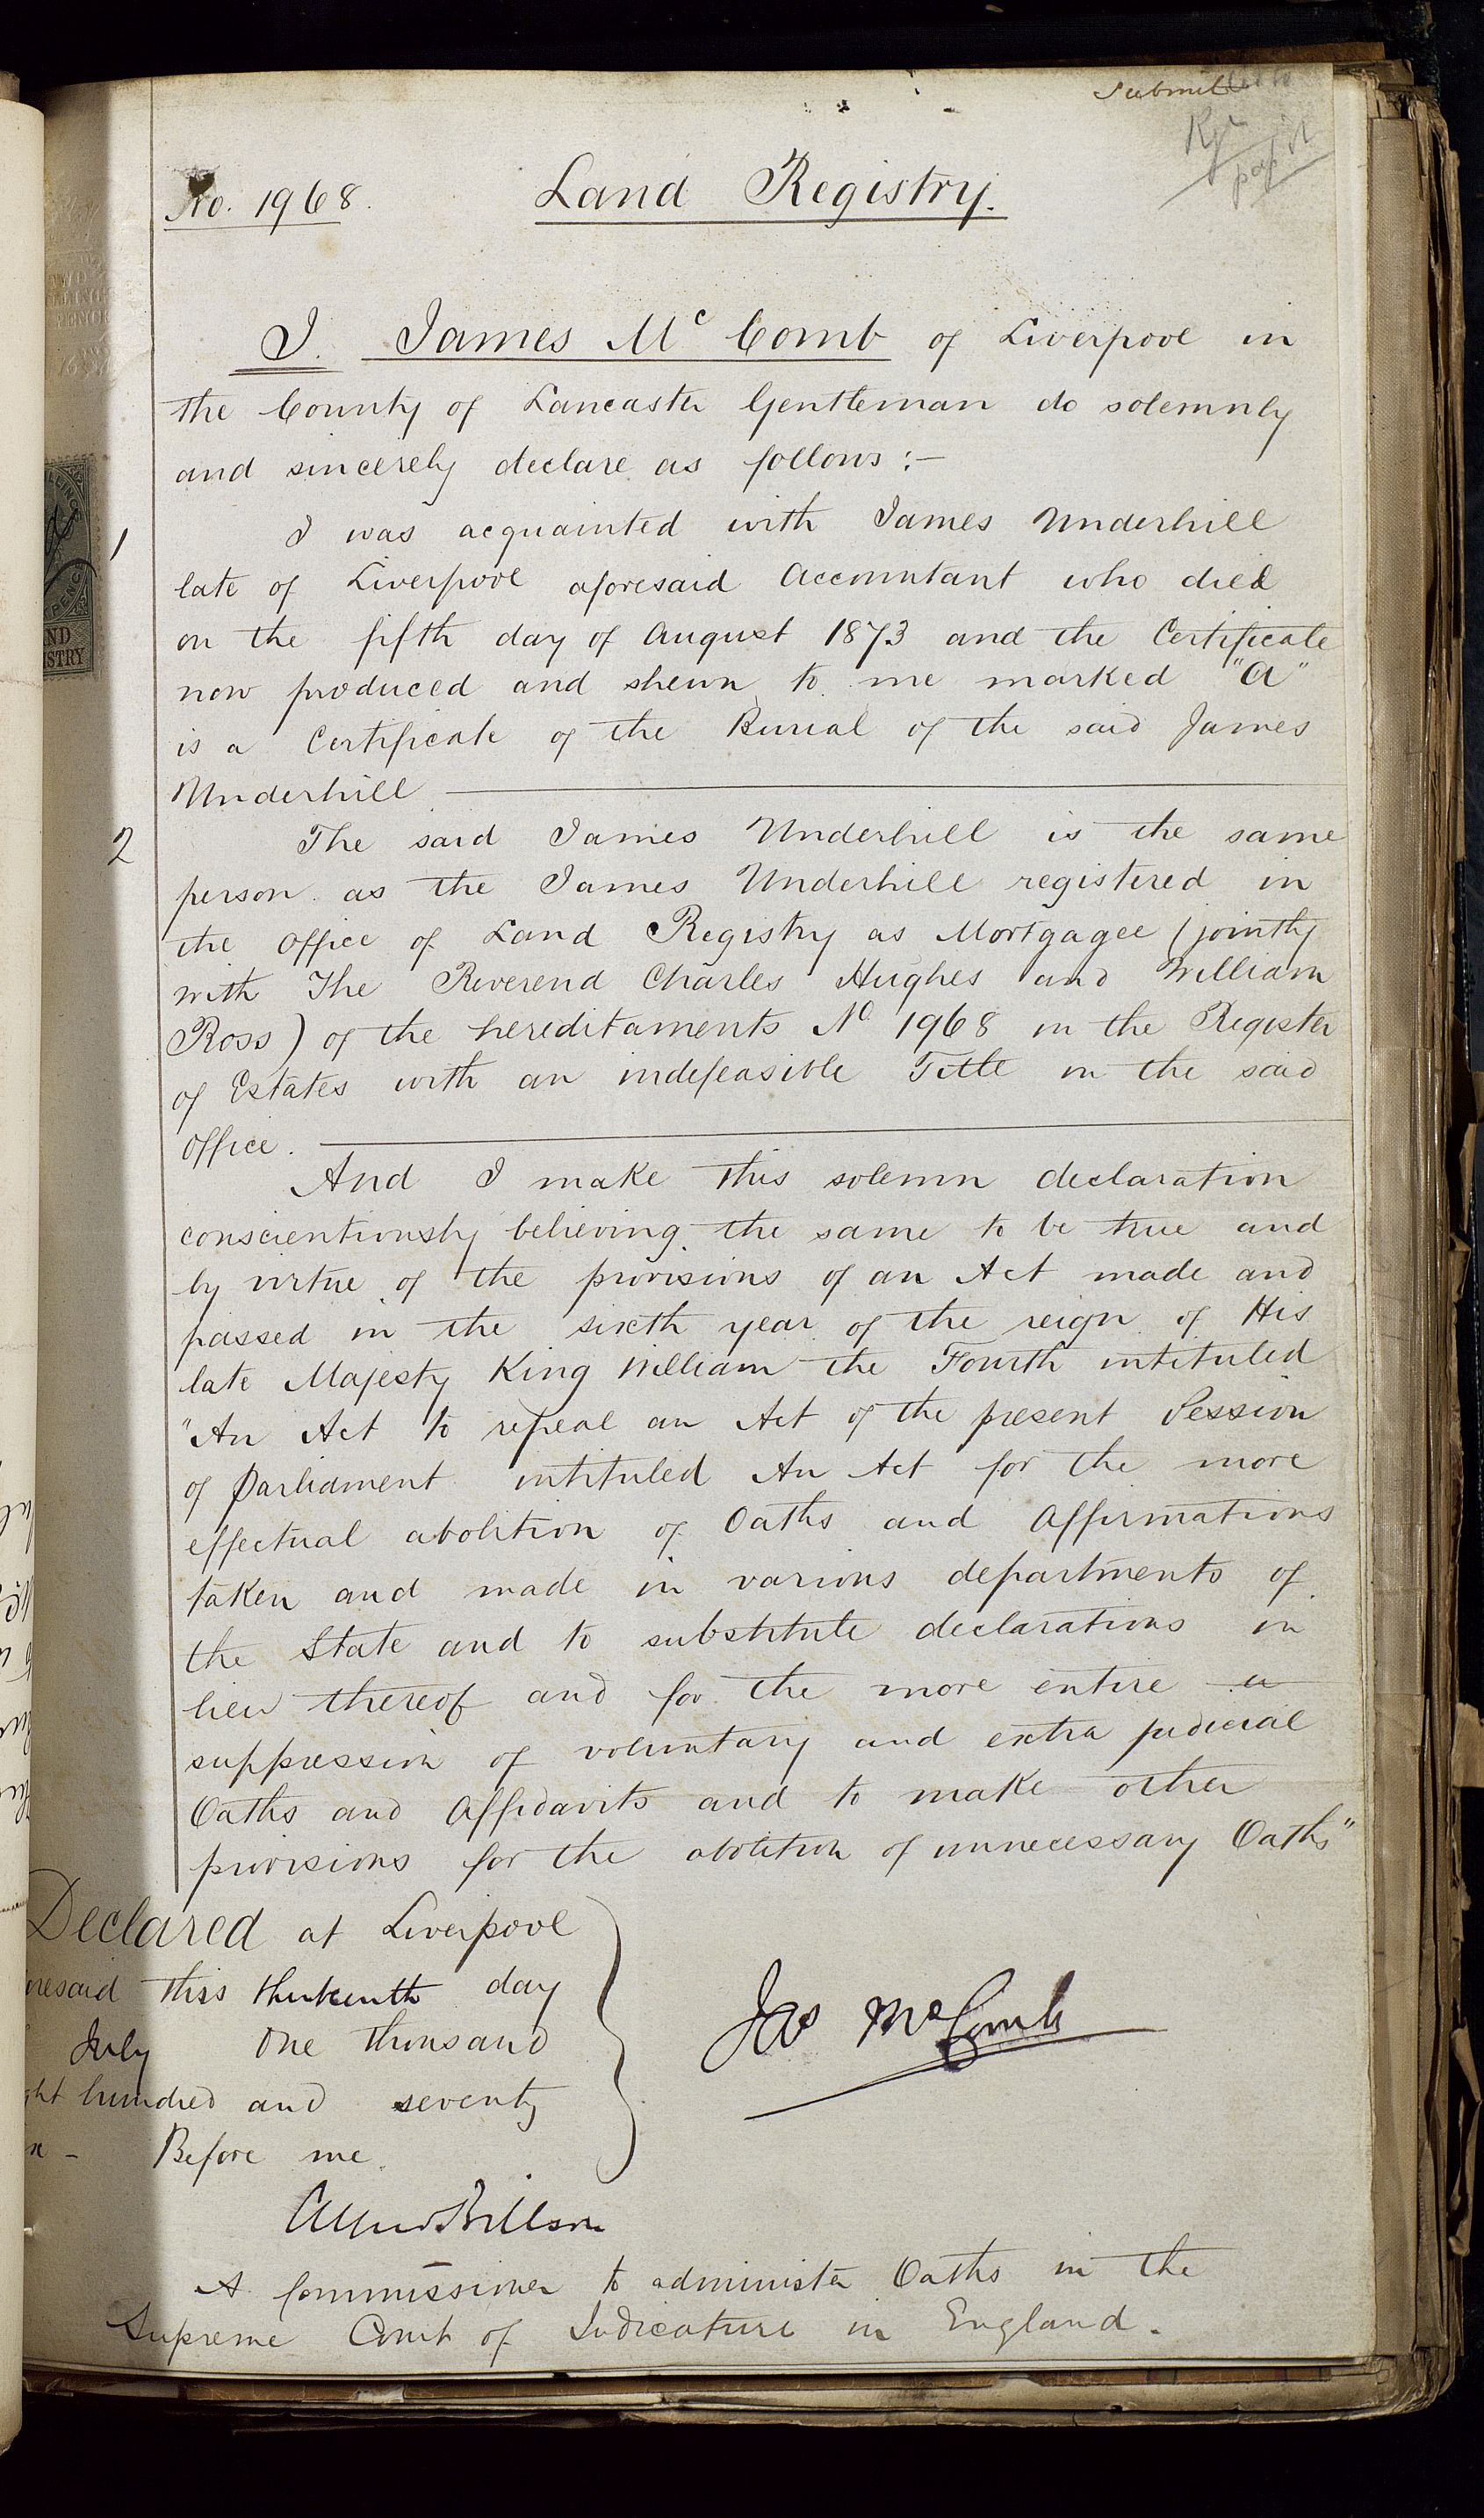 Submitted to
No. 1968.
Land Registry.
I. James Mc Comb of Liverpool in
the County of Lancaster Gentleman do solemnly
and sincerely declare as follows:—
1
I was acquainted with James Underhill
late of Liverpool aforesaid Accountant who died
on the fifth day of August 1873 and the Certificate
now produced and shewn to me marked "A"
is a Certificate of the Burial of the said James
Underhill
2
The said James Underhill is the same
person as the James Underhill registered in
the Office of Land Registry as Mortgagee (jointly
with The Reverend Charles Hughes and William
Ross) of the hereditaments No. 1968 in the Register
of Estates with an indefeasible Title in the said
Office.
And I make this solemn declaration
conscientiously believing the same to be true and
by virtue of the provisions of an Act made and
passed in the sixth year of the reign of His
late Majesty King William the Fourth intituled
"An Act to repeal an Act of the present Session
of Parliament intituled An Act for the more
effectual abolition of Oaths and Affirmations
taken and made in various departments of
the State and to substitute declarations in
lieu thereof and for the more entire
suppression of voluntary and extra judicial
Oaths and Affidavits and to make other
provisions for the abolition of unnecessary Oaths"
Declared at Liverpool
oresaid this thirteenth day
July One thousand
ght hundred and seventy
x - Before me
Jas McComb
Alfred Billson
A Commissioner to administer Oaths in the
Supreme Court of Judicature in England.